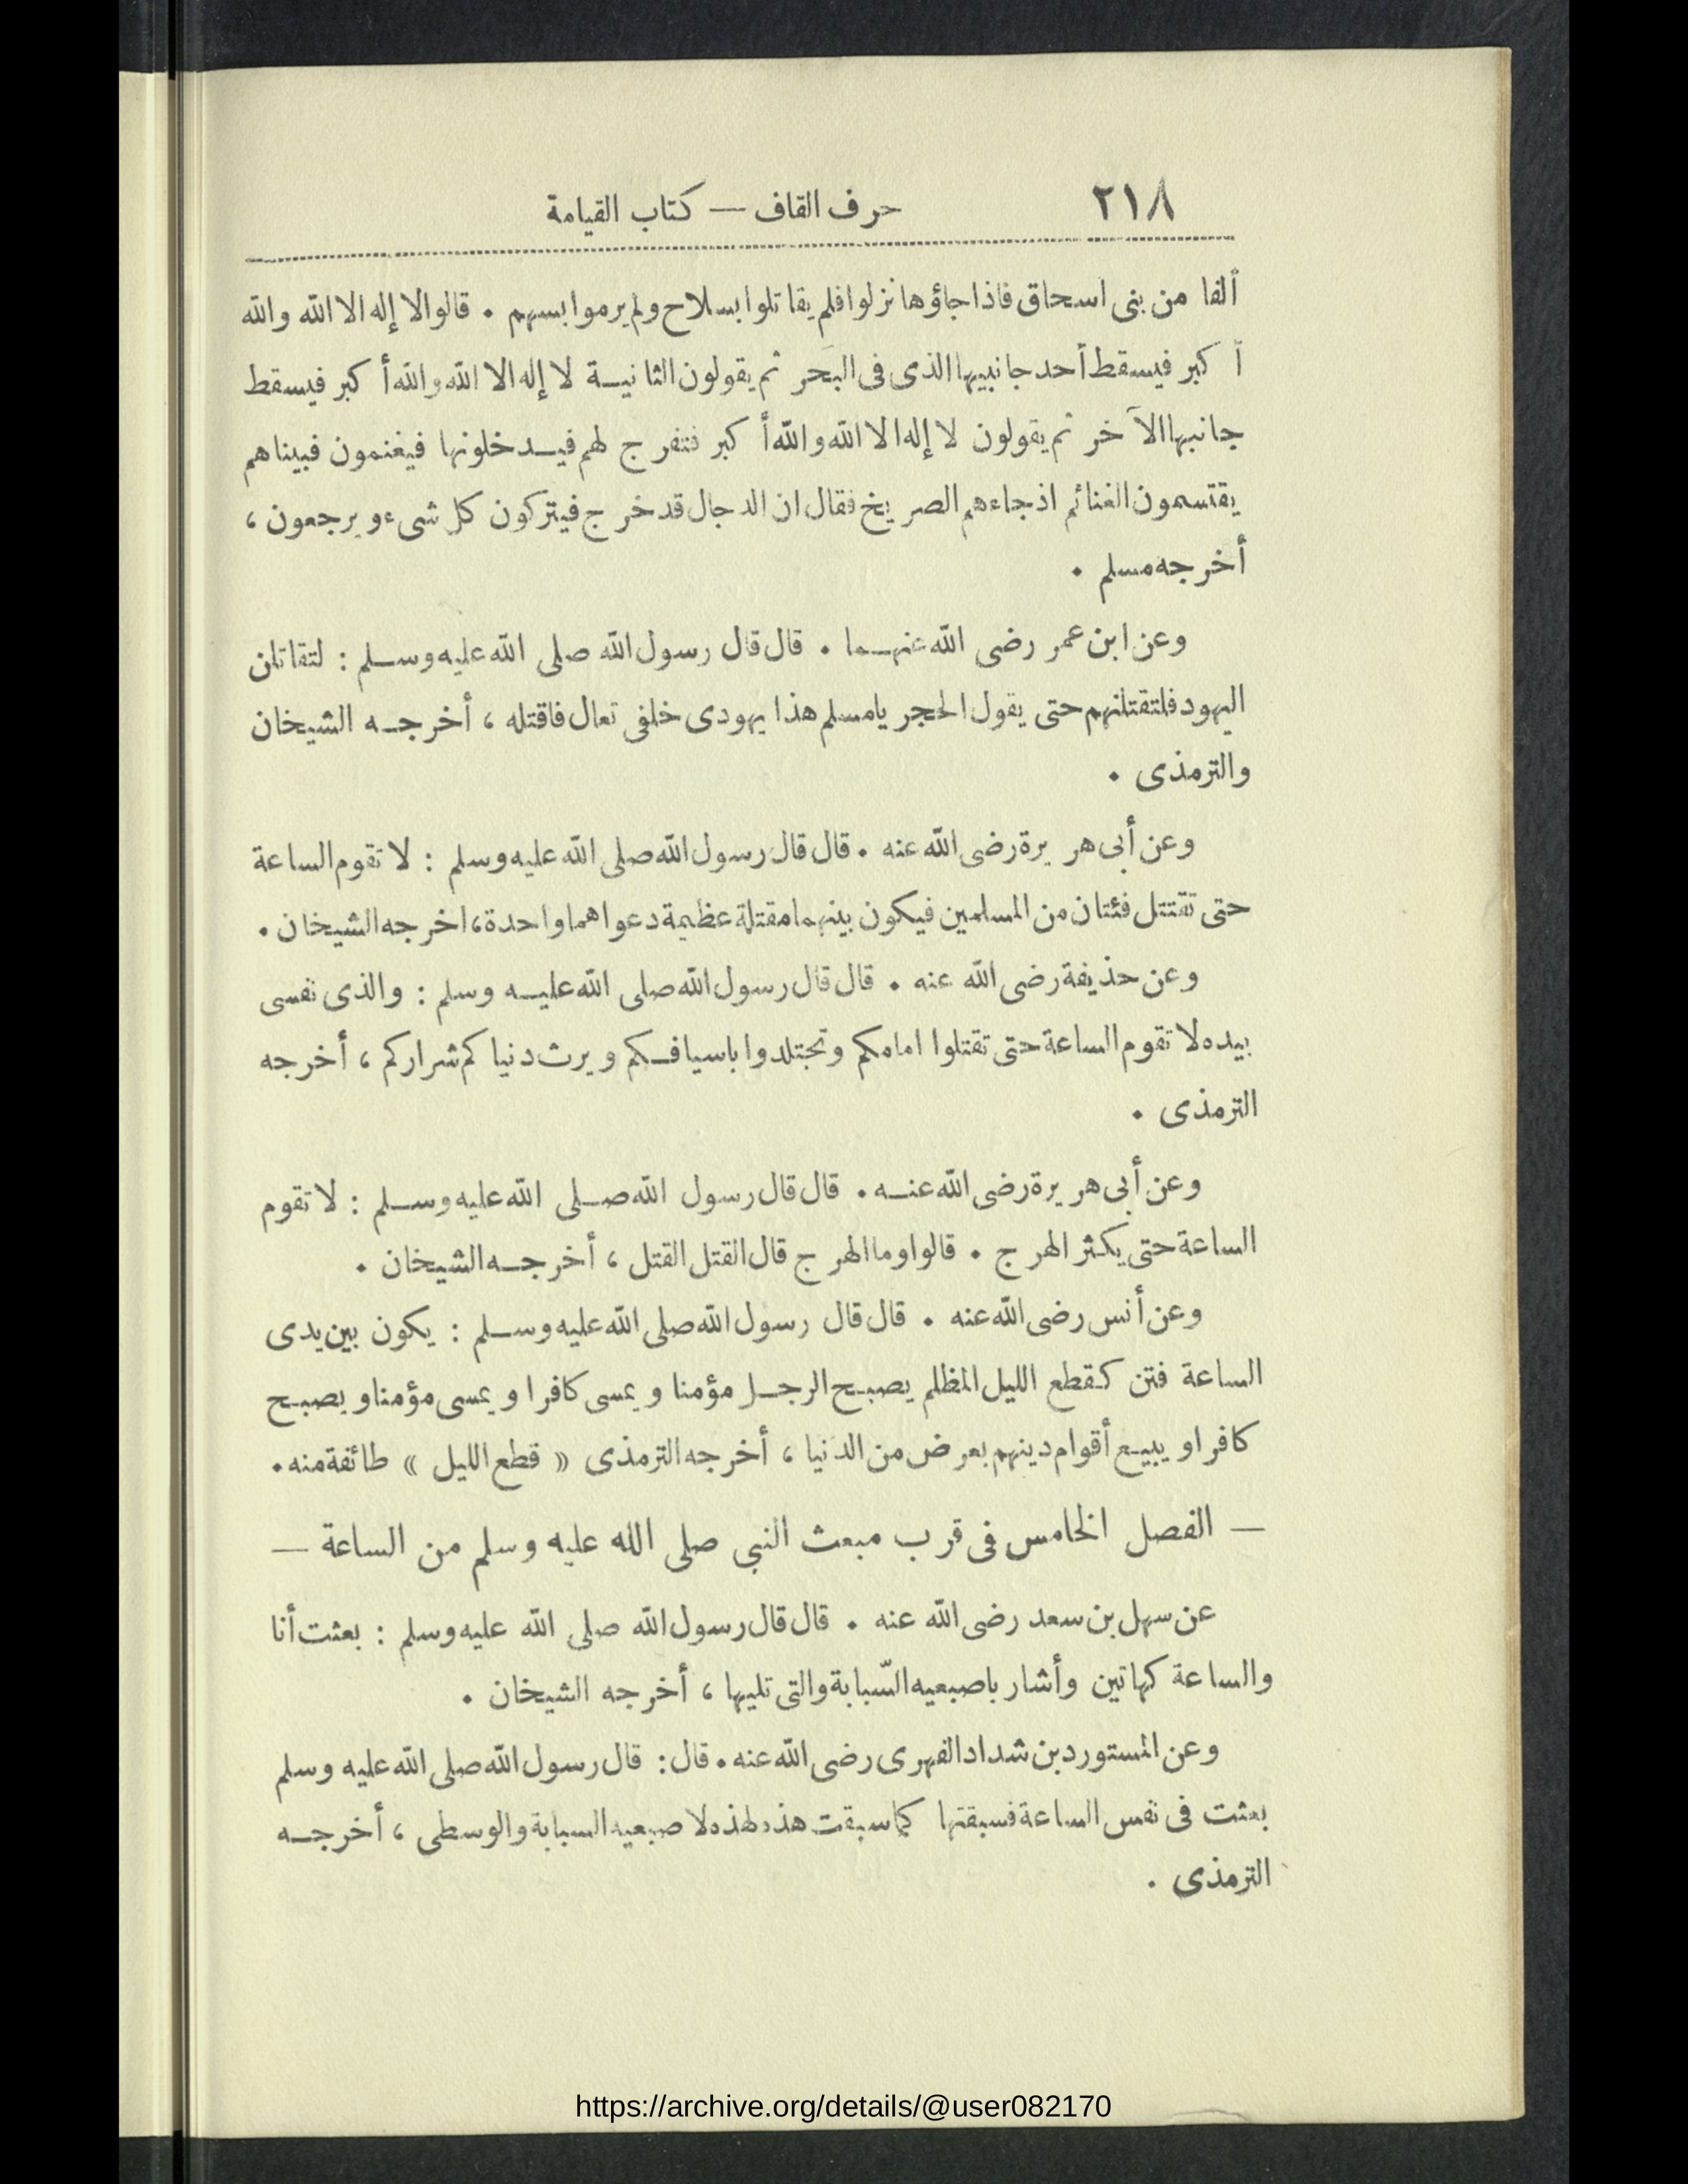 ٢١٨ حرف القاف — كتاب القيامة
ألفا من بنى اسحاق فاذا جاؤها نزلوا فلم يقاتلوا بسلاح ولم يرموا بسهم . قالوا لا إله الا الله والله
أكبر فيسقط أحد جانبيها الذى فى البحر ثم يقولون الثانية لا إله الا الله والله أكبر فيسقط
جانبها الآخر ثم يقولون لا إله الا الله والله أكبر فتفرج لهم فيدخلونها فيغنمون فبيناهم
يقتسمون الغنائم اذ جاءهم الصريخ فقال ان الدجال قد خرج فيتركون كل شىء ويرجعون ،
أخرجه مسلم .
وعن ابن عمر رضى الله عنهما . قال قال رسول الله صلى الله عليه وسلم : لتقاتلن
اليهود فلتقتلنهم حتى يقول الحجر يا مسلم هذا يهودى خلفى تعال فاقتله ، أخرجه الشيخان
والترمذى .
وعن أبى هريرة رضى الله عنه . قال قال رسول الله صلى الله عليه وسلم : لا تقوم الساعة
حتى تقتتل فئتان من المسلمين فيكون بينهما مقتلة عظيمة دعواهما واحدة ، اخرجه الشيخان .
وعن حذيفة رضى الله عنه . قال قال رسول الله صلى الله عليه وسلم : والذى نفسى
بيده لا تقوم الساعة حتى تقتلوا امامكم وتجتلدوا باسيافكم ويرث دنياكم شراركم ، أخرجه
الترمذى .
وعن أبى هريرة رضى الله عنه . قال قال رسول الله صلى الله عليه وسلم : لا تقوم
الساعة حتى يكثر الهرج . قالوا وما الهرج قال القتل القتل ، أخرجه الشيخان .
وعن أنس رضى الله عنه . قال قال رسول الله صلى الله عليه وسلم : يكون بين يدى
الساعة فتن كقطع الليل المظلم يصبح الرجل مؤمنا ويمسى كافرا ويمسى مؤمنا ويصبح
كافرا ويبيع أقوام دينهم بعرض من الدنيا ، أخرجه الترمذى « قطع الليل » طائفة منه .
— الفصل الخامس فى قرب مبعث النبى صلى الله عليه وسلم من الساعة —
عن سهل بن سعد رضى الله عنه . قال قال رسول الله صلى الله عليه وسلم : بعثت أنا
والساعة كهاتين وأشار باصبعيه السّبابة والتى تليها ، أخرجه الشيخان .
وعن المستورد بن شداد الفهرى رضى الله عنه . قال : قال رسول الله صلى الله عليه وسلم
بعثت فى نفس الساعة فسبقتها كما سبقت هذه لهذه لاصبعيه السبابة والوسطى ، أخرجه
الترمذى .
https://archive.org/details/@user082170